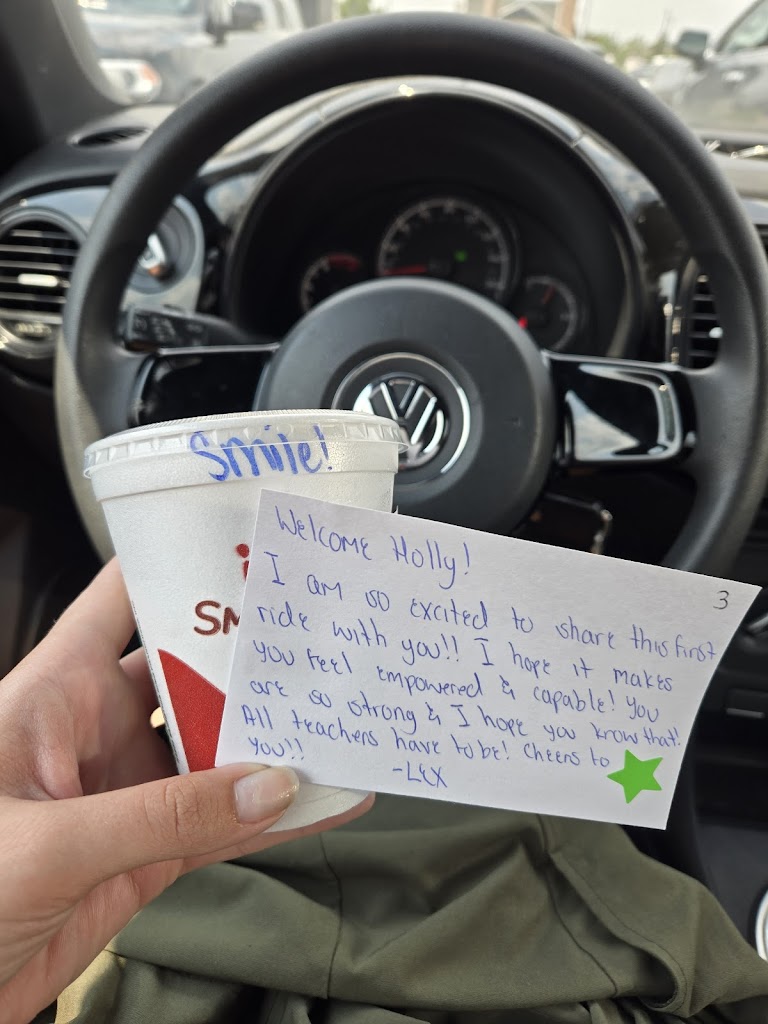 Smile!
SM
Welcome Holly!
3
I am so excited to share this first
ride with you!! I hope it makes
you feel empowered & capable! You
are so strong & I hope you know that!
All teachers have to be! Cheers to
you!!
-Lex